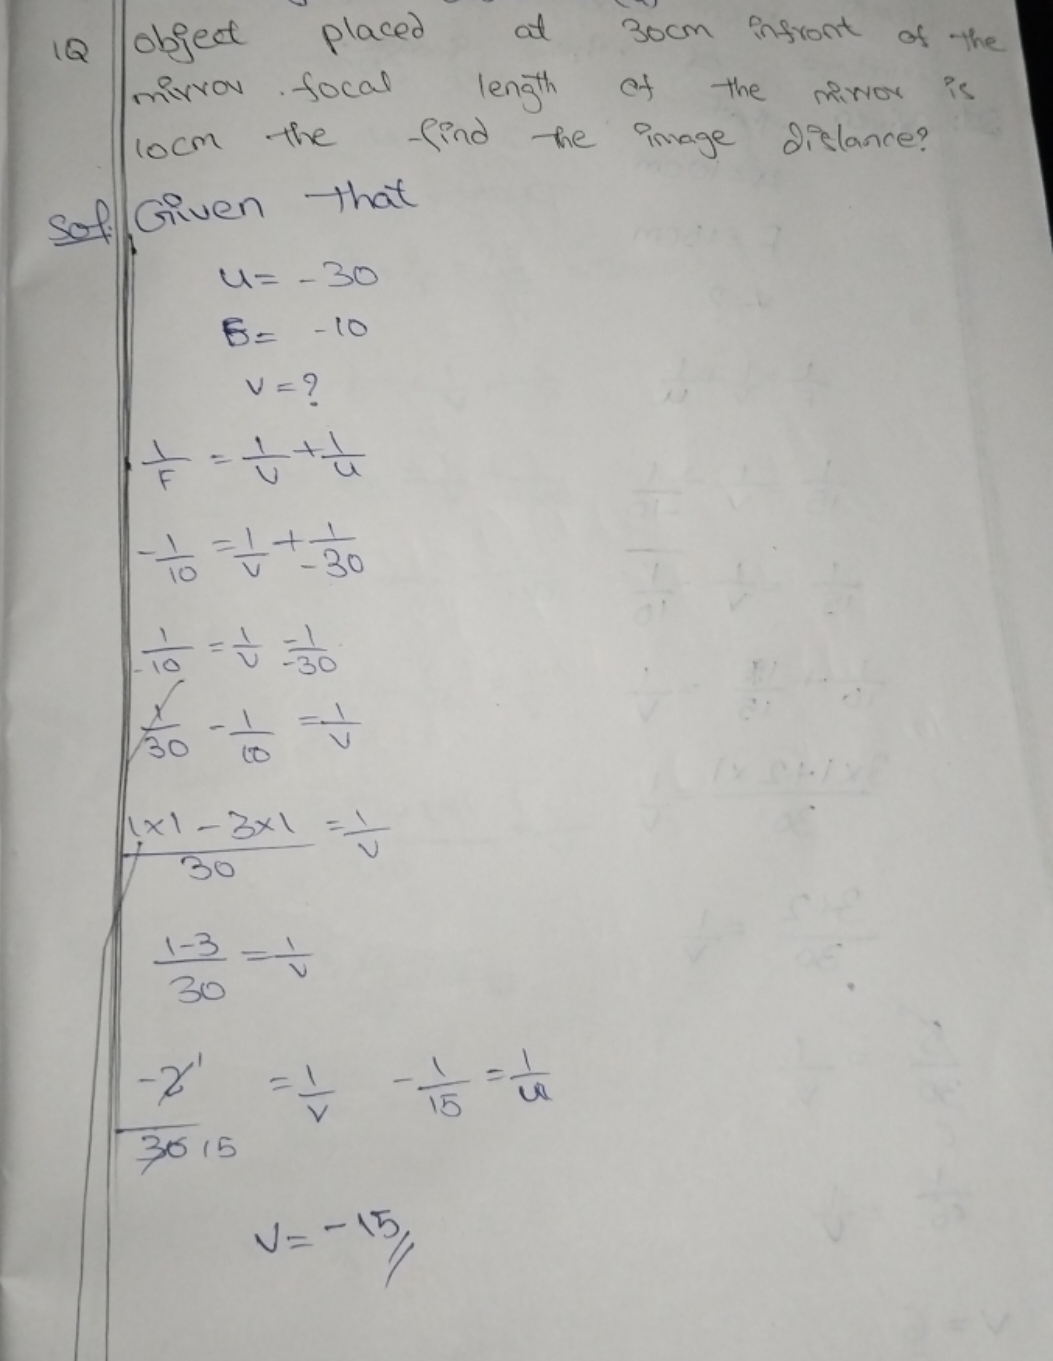 1Q object placed at 30cm infront of the
mirror . focal length of the mirror is
10cm the find the image distance?
Sol: Given that
u= -30
F= -10
v=?
1/F = 1/v + 1/u
-1/10 = 1/v + 1/-30
1/-10 = 1/v = 1/-30
1/30 - 1/10 = 1/v
1x1 - 3x1/30 = 1/v
1-3/30 = 1/v
-2 1/30 15 = 1/v -1/15 = 1/u
v= -15//